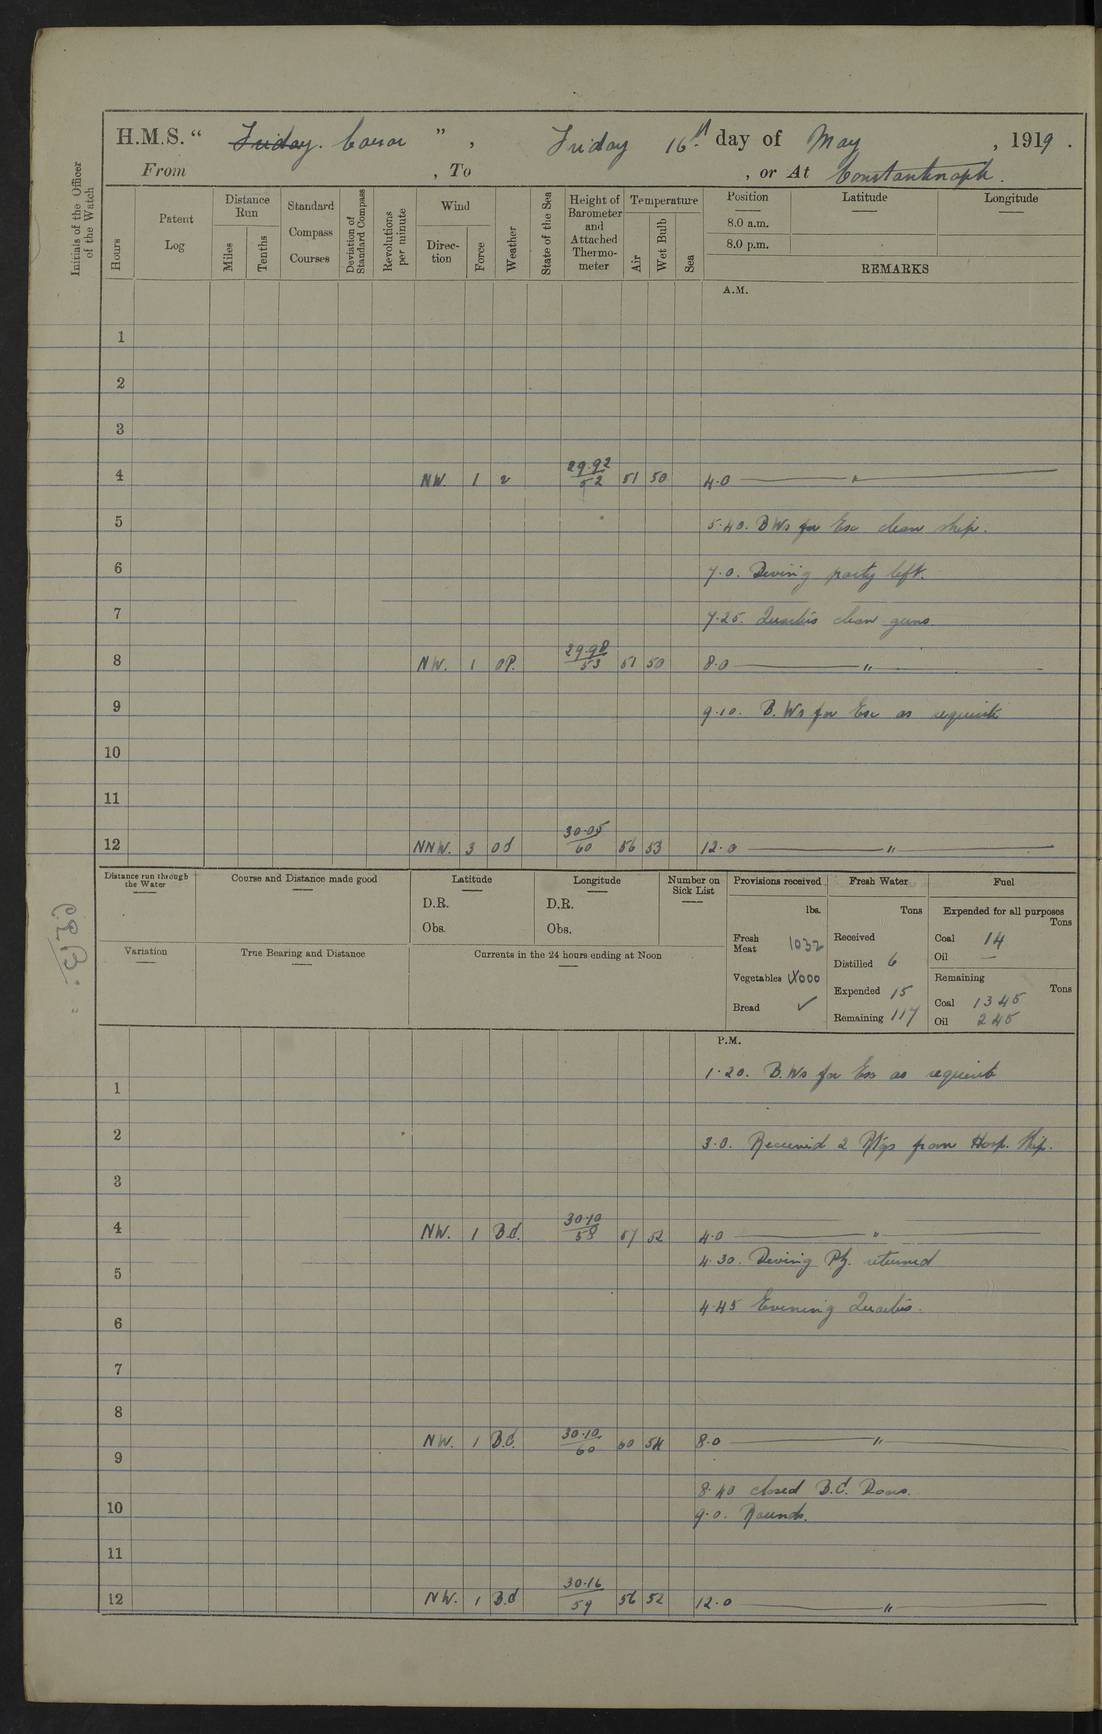 H.M.S. “ Friday. Caesar ” , Friday 16th day of May , 1919 .
From , To , or At Constantinople.
Initials of the Officer of the Watch
Hours
Patent Log
Distance Run
Miles
Tenths
Standard Compass Courses
Deviation of Standard Compass
Revolutions per minute
Wind
Direc-tion
Force
Weather
State of the Sea
Height of Barometer and Attached Thermo-meter
Temperature
Air
Wet Bulb
Sea
Position Latitude Longitude
8.0 a.m.
8.0 p.m.
REMARKS
A.M.
1
2
3
4 NW. 1 29.92 / 52 51 50 4.0 "
5 5.40. B Ws for Exc clean ship.
6 7.0. Diving party left.
7 7.25. Quarters clean guns
8 NW. 1 OP. 29.98 / 53 51 50 8.0 "
9 9.10. B. Ws for Exc as requisite
10
11
12 NNW. 3 30.05 / 60 56 53 12.0 "
Distance run through the Water
Course and Distance made good
Latitude
D.R.
Obs.
Longitude
D.R.
Obs.
Number on Sick List
Variation
True Bearing and Distance
Currents in the 24 hours ending at Noon
Provisions received
lbs.
Fresh Meat 1032
Vegetables
Bread ✓
Fresh Water
Tons
Received
Distilled 6
Expended 15
Remaining 117
Fuel
Expended for all purposes
Tons
Coal 14
Oil —
Remaining
Tons
Coal 1345
Oil 245
P.M.
1 1.20. B.Ws for Exc as requisite
2 3.0. Received 2 Rtgs from Hosp. Ship.
3
4 NW. 1 B.C. 30.10 / 58 57 52 4.0 "
4.30. Diving Pty. returned
5
4.45 Evening Quarters.
6
7
8
NW. 1 B.C. 30.10 / 60 60 54 8.0 "
9
8.40 closed B.C. Doors.
10 9.0. Rounds.
11
12 NW. 1 B.C 30.16 / 59 56 52 12.0 "